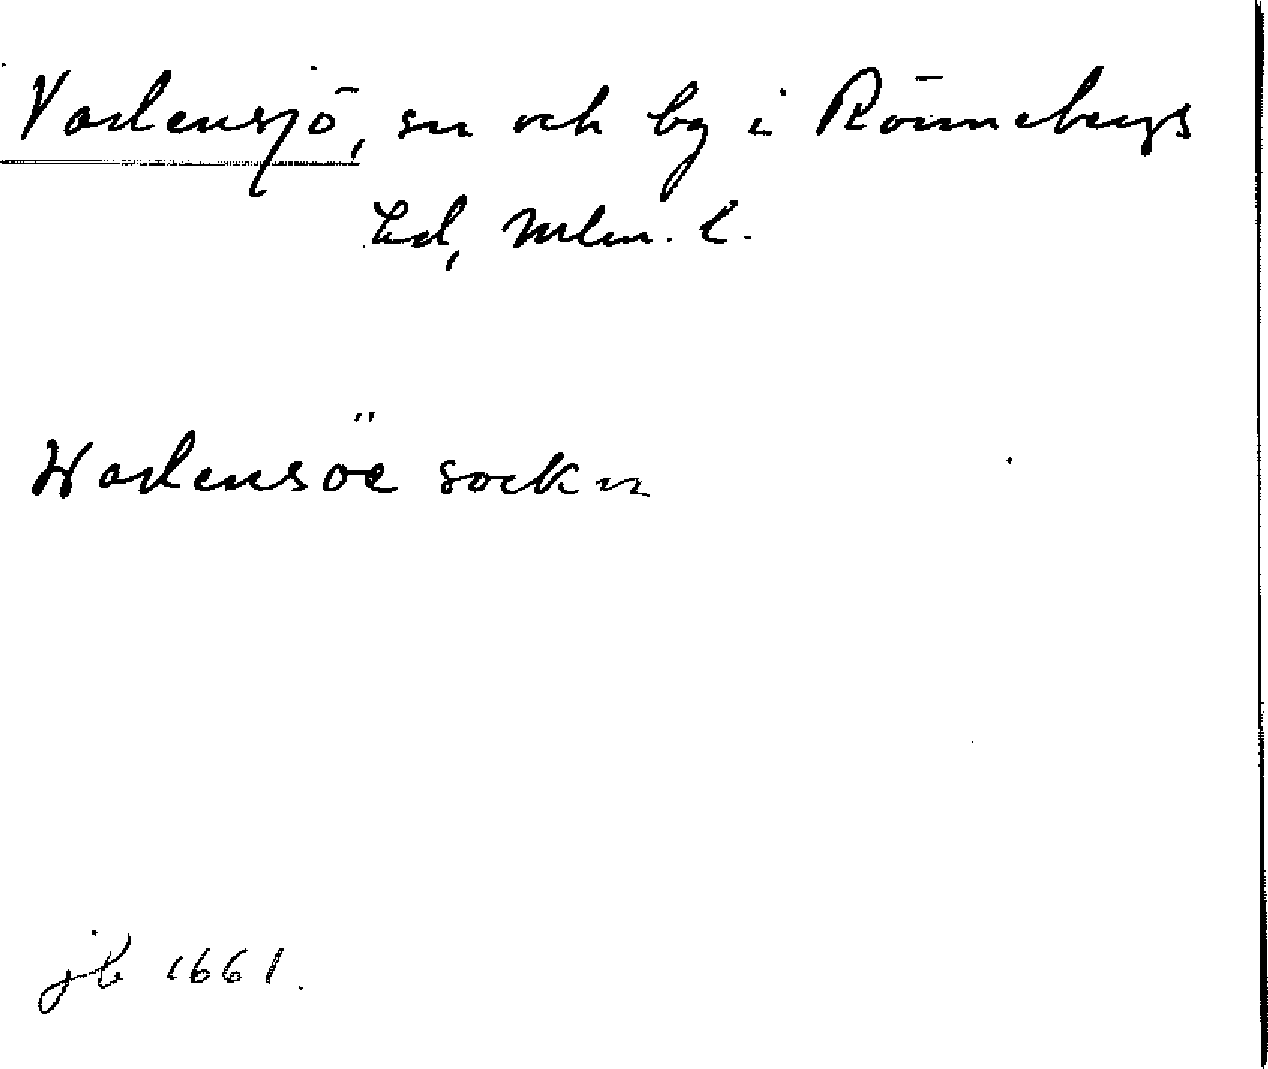 Vadensjö, sn och by i Rönnebergs
hd, Mlm. l.
Wadensöe sockn
jb 1661.